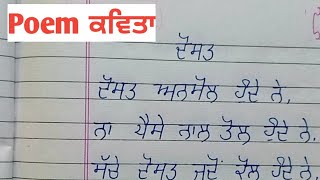 Poem ਕਵਿਤਾ
ਦੋਸਤ
ਦੋਸਤ ਅਨਮੋਲ ਹੁੰਦੇ ਨੇ,
ਨਾ ਪੈਸੇ ਨਾਲ ਤੋਲ ਹੁੰਦੇ ਨੇ.
ਸੱਚੇ ਦੋਸਤ ਜਦੋਂ ਕੋਲ ਹੁੰਦੇ ਨੇ,